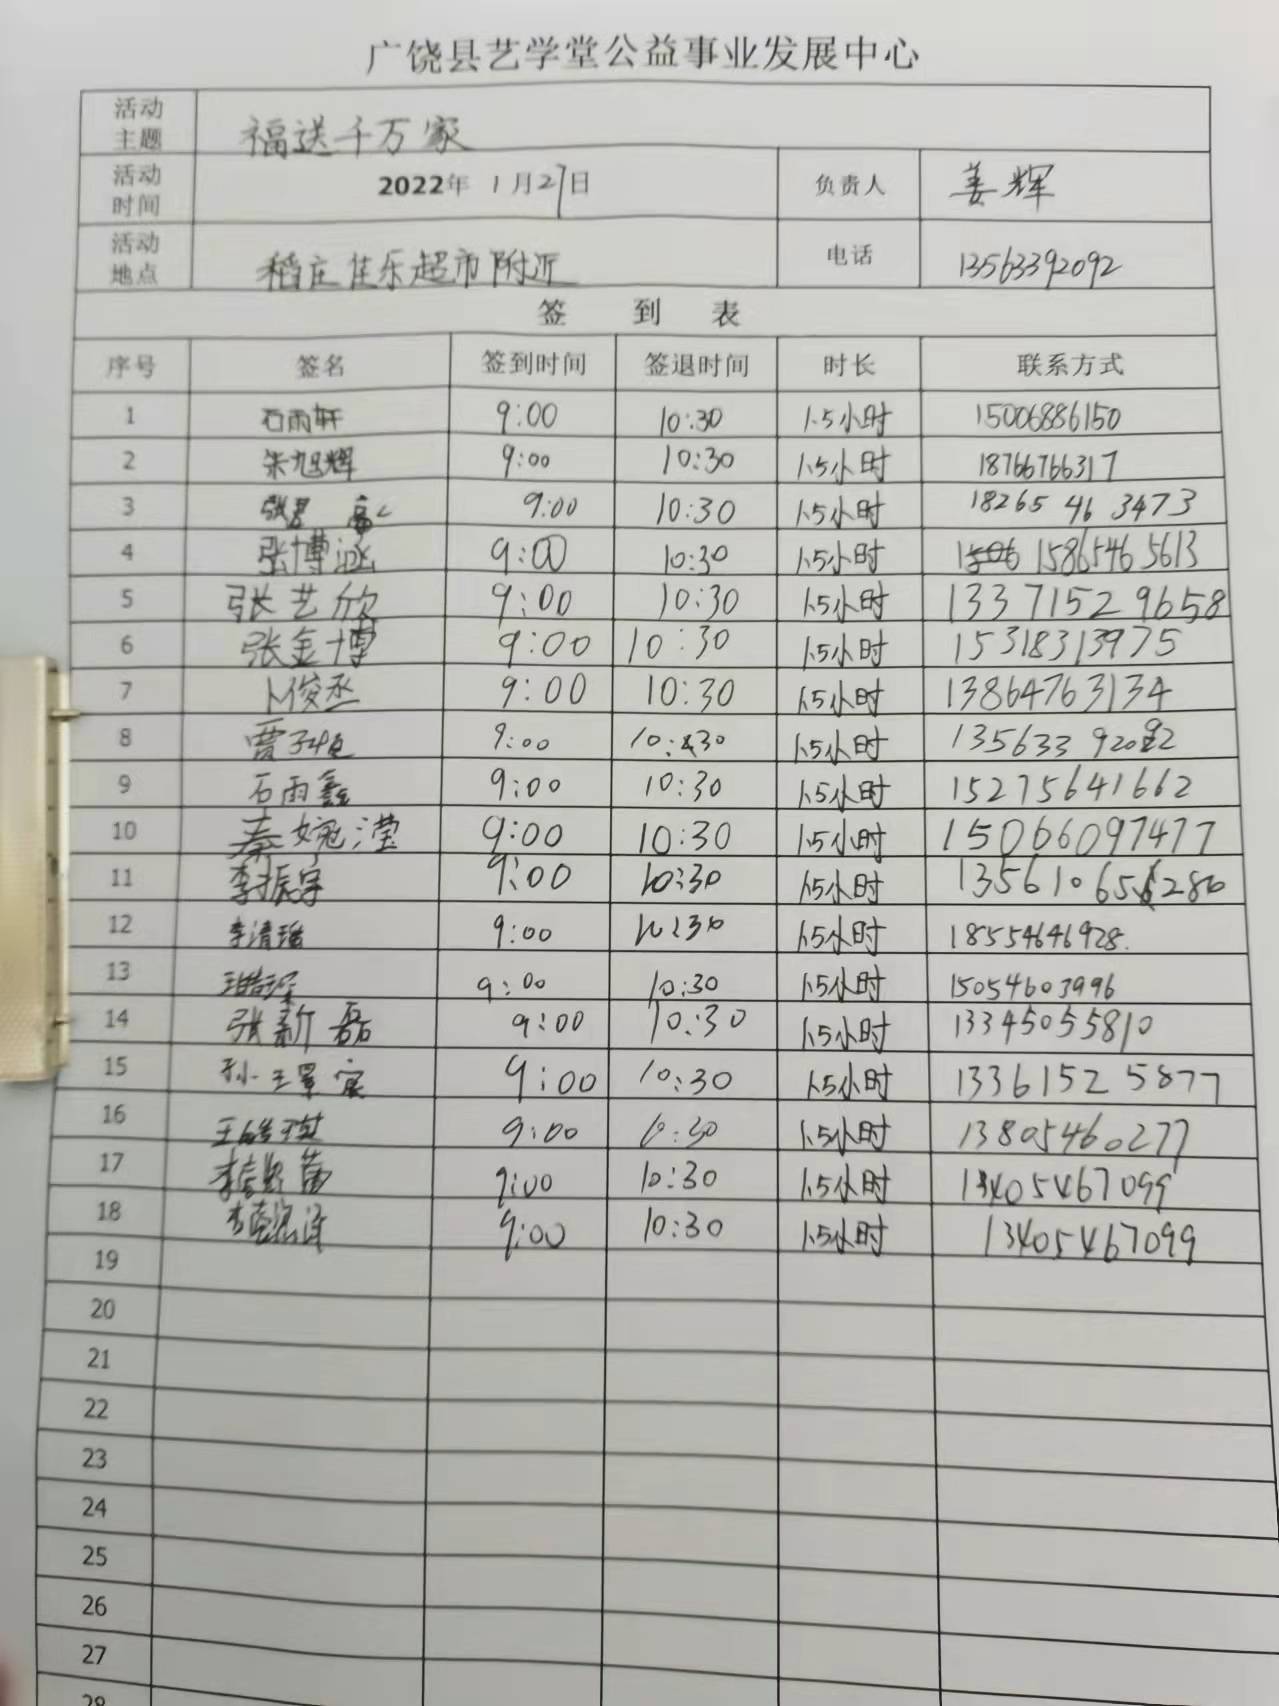 广饶县艺学堂公益事业发展中心
活动主题 福送千万家
活动时间 2022年 1月27日 负责人 姜辉
活动地点 稻庄佳乐超市附近 电话 13563392092
签 到 表
序号 签名 签到时间 签退时间 时长 联系方式
1 石雨轩 9:00 10:30 1.5小时 15006886150
2 朱旭辉 9:00 10:30 1.5小时 18766766317
3 9:00 10:30 1.5小时 18265 46 3473
4 张博涵 9:00 10:30 1.5小时 1586546 5613
5 张艺欣 9:00 10:30 1.5小时 1337152 9658
6 张金博 9:00 10:30 1.5小时 15318313975
7 卜俊丞 9:00 10:30 1.5小时 13864763134
8 贾子恒 9:00 10:30 1.5小时 135633 92092
9 石雨鑫 9:00 10:30 1.5小时 15275641662
10 秦婉滢 9:00 10:30 1.5小时 15066097477
11 李振宇 9:00 10:30 1.5小时
12 9:00 10:30 1.5小时 18554646928.
13 9:00 10:30 1.5小时 15054603996
14 张新磊 9:00 10:30 1.5小时 13345055810
15 9:00 10:30 1.5小时 1336152 5877
16 9:00 10:30 1.5小时 13805460277
17 9:00 10:30 1.5小时 13405467099
18 9:00 10:30 1.5小时 13405467099
19
20
21
22
23
24
25
26
27
28